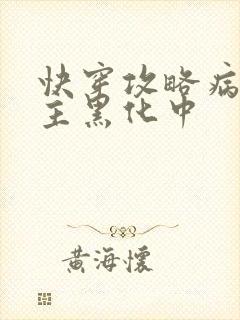 快穿攻略病
主黑化中
黄海怀